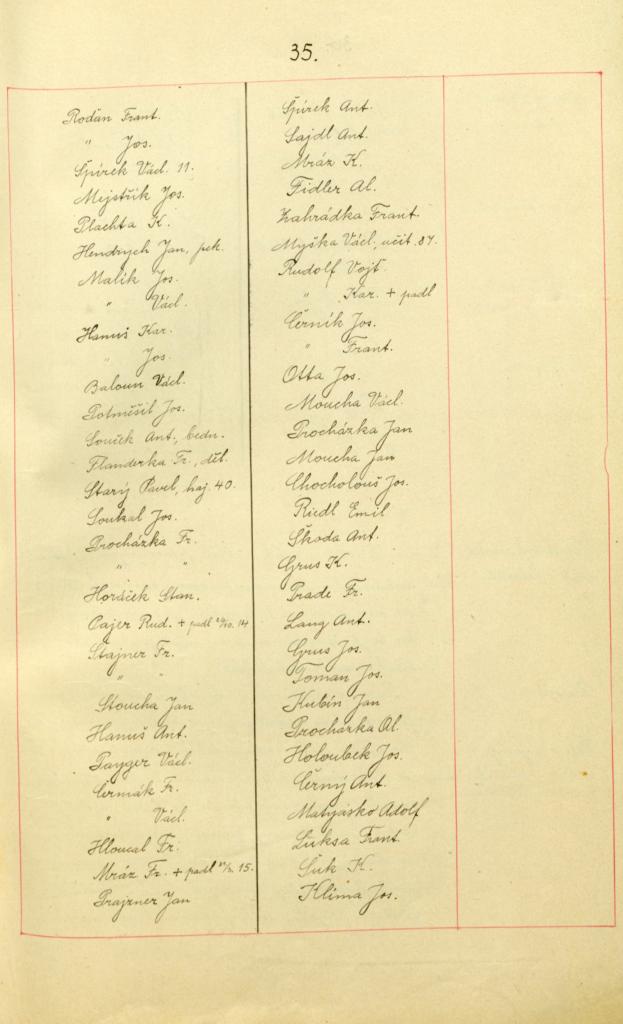 35.
Rodan Frant.
" Jos.
Špírek Václ. 11.
Mejstřík Jos.
Plachta K.
Hendrych Jan, pek.
Malík Jos.
" Václ.
Hanuš Kar.
" Jos.
Baloun Václ.
Potměšil Jos.
Souček Ant., bedn.
Flanderka Fr., děl.
Starý Pavel, haj. 40.
Soukal Jos.
Procházka Fr.
" "
Horáček Stan.
Cajer Rud. + padl 14
Štajner Fr.
" "
Stoucha Jan
Hanuš Ant.
Payger Václ.
Čermák Fr.
" Václ.
Hloucal Fr.
Mráz Fr. + padl 15.
Prajzner Jan
Špírek Ant.
Sajdl Ant.
Mráz K.
Fidler Al.
Zahrádka Frant.
Myška Václ., učit. 87.
Rudolf Vojt.
" Kar. + padl
Černík Jos.
" Frant.
Otta Jos.
Moucha Václ.
Procházka Jan
Moucha Jan
Chocholouš Jos.
Riedl Emil
Škoda Ant.
Grus K.
Prade Fr.
Lang Ant.
Grus Jos.
Toman Jos.
Kubín Jan
Procházka Al.
Holoubek Jos.
Černý Ant.
Matyásko Adolf
Luksa Frant.
Suk K.
Klíma Jos.